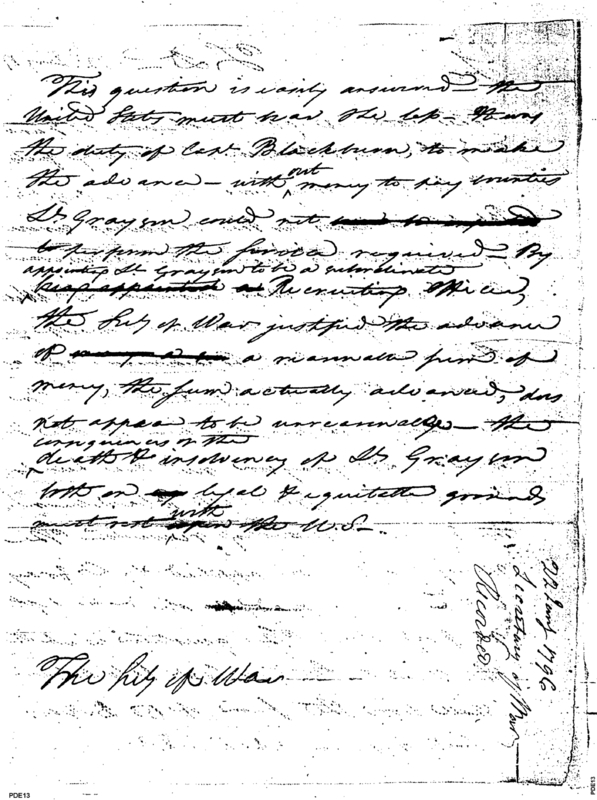 This question is easily answered — the
United States must bear the loss — It was
the duty of Capt. Blackburn, to make
the advance — with out money to pay bounties
Lt Grayson could not
to perform the service required — By
appointing Lt Grayson to be a subordinate
being appointed a Recruiting Officer,
the Secy of War justified the advance
of a reasonable sum of
money, the sum actually advanced, does
not appear to be unreasonable — the
consequences of the
death & insolvency of Lt Grayson
both on legal & equitable grounds
with
must rest upon the U.S. —
The Secy of War
22 Jany 1796
Secretary of War
Recorded.
PDE13
PDE13